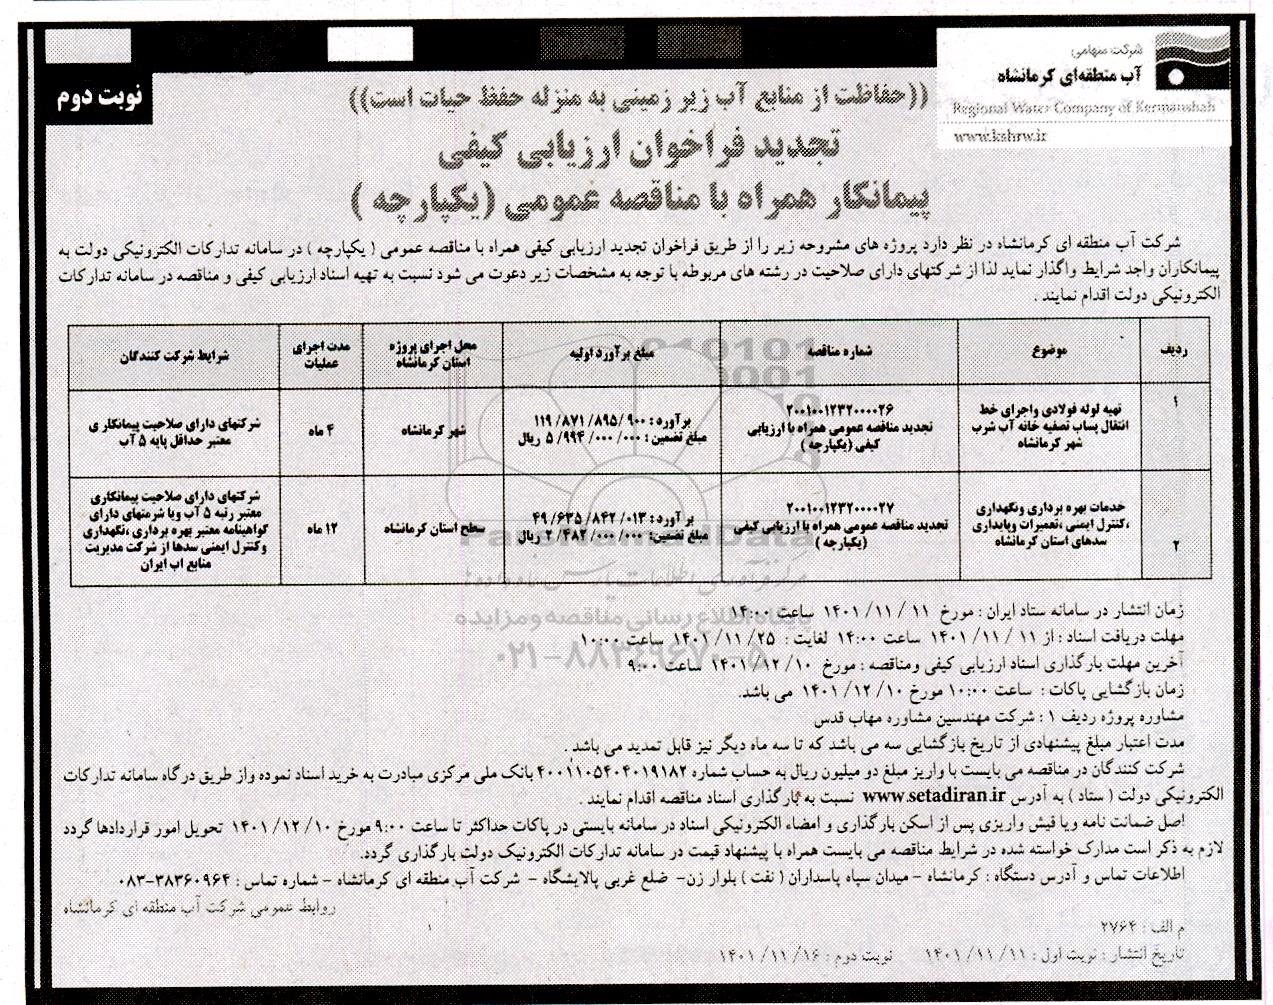 شرکت سهامی
آب منطقه‌ای کرمانشاه
Regional Water Company of Kermanshah
www.kshrw.ir
نوبت دوم
((حفاظت از منابع آب زیر زمینی به منزله حفظ حیات است))
تجدید فراخوان ارزیابی کیفی
پیمانکار همراه با مناقصه عمومی (یکپارچه )
شرکت آب منطقه ای کرمانشاه در نظر دارد پروژه های مشروحه زیر را از طریق فراخوان تجدید ارزیابی کیفی همراه با مناقصه عمومی ( یکپارچه ) در سامانه تدارکات الکترونیکی دولت به
پیمانکاران واجد شرایط واگذار نماید لذا از شرکتهای دارای صلاحیت در رشته های مربوطه با توجه به مشخصات زیر دعوت می شود نسبت به تهیه اسناد ارزیابی کیفی و مناقصه در سامانه تدارکات
الکترونیکی دولت اقدام نمایند .
ردیف
موضوع
شماره مناقصه
مبلغ برآورد اولیه
محل اجرای پروژه
استان کرمانشاه
مدت اجرای
عملیات
شرایط شرکت کنندگان
۱
تهیه لوله فولادی واجرای خط
انتقال پساب تصفیه خانه آب شرب
شهر کرمانشاه
۲۰۰۱۰۰۱۲۳۲۰۰۰۰۲۶
تجدید مناقصه عمومی همراه با ارزیابی
کیفی (یکپارچه )
برآورد : ۱۱۹/ ۸۷۱/ ۸۹۵/ ۹۰۰
مبلغ تضمین : ۵/ ۹۹۴/ ۰۰۰/ ۰۰۰ ریال
شهر کرمانشاه
۴ ماه
شرکتهای دارای صلاحیت پیمانکاری
معتبر حداقل پایه ۵ آب
۲
خدمات بهره برداری ونگهداری
،کنترل ایمنی ،تعمیرات وپایداری
سدهای استان کرمانشاه
۲۰۰۱۰۰۱۲۳۲۰۰۰۰۲۷
تجدید مناقصه عمومی همراه با ارزیابی کیفی
(یکپارچه )
بر آورد : ۴۹/ ۶۳۵/ ۸۴۲/ ۰۱۳
مبلغ تضمین: ۲/ ۴۸۲/ ۰۰۰/ ۰۰۰ ریال
سطح استان کرمانشاه
۱۲ ماه
شرکتهای دارای صلاحیت پیمانکاری
معتبر رتبه ۵ آب ویا شرمتهای دارای
گواهینامه معتبر بهره برداری ،نگهداری
وکنترل ایمنی سدها از شرکت مدیریت
منابع اب ایران
زمان انتشار در سامانه ستاد ایران : مورخ ۱۱ /۱۱ /۱۴۰۱ ساعت ۱۴:۰۰
مهلت دریافت اسناد : از ۱۱ /۱۱ /۱۴۰۱ ساعت ۱۴:۰۰ لغایت : ۲۵/ ۱۱/ ۱۴۰۱ ساعت ۱۰:۰۰
آخرین مهلت بارگذاری اسناد ارزیابی کیفی ومناقصه : مورخ ۱۰/ ۱۲/ ۱۴۰۱ ساعت ۹:۰۰
زمان بازگشایی پاکات : ساعت ۱۰:۰۰ مورخ ۱۰/ ۱۲/ ۱۴۰۱ می باشد.
مشاوره پروژه ردیف ۱ : شرکت مهندسین مشاوره مهاب قدس
مدت اعتبار مبلغ پیشنهادی از تاریخ بازگشایی سه می باشد که تا سه ماه دیگر نیز قابل تمدید می باشد .
شرکت کنندگان در مناقصه می بایست با واریز مبلغ دو میلیون ریال به حساب شماره ۴۰۰۱۱۰۵۴۰۴۰۱۹۱۸۲ بانک ملی مرکزی مبادرت به خرید اسناد نموده واز طریق درگاه سامانه تدارکات
الکترونیکی دولت ( ستاد ) به آدرس www.setadiran.ir نسبت به بارگذاری اسناد مناقصه اقدام نمایند .
اصل ضمانت نامه ویا فیش واریزی پس از اسکن بارگذاری و امضاء الکترونیکی اسناد در سامانه بایستی در پاکات حداکثر تا ساعت ۹:۰۰ مورخ ۱۰/ ۱۲/ ۱۴۰۱ تحویل امور قراردادها گردد
لازم به ذکر است مدارک خواسته شده در شرایط مناقصه می بایست همراه با پیشنهاد قیمت در سامانه تدارکات الکترونیک دولت بارگذاری گردد.
اطلاعات تماس و آدرس دستگاه : کرمانشاه - میدان سپاه پاسداران ( نفت ) بلوار زن- ضلع غربی پالایشگاه - شرکت آب منطقه ای کرمانشاه - شماره تماس : ۳۸۳۶۰۹۶۴-۰۸۳
روابط عمومی شرکت آب منطقه ای کرمانشاه
م الف : ۲۷۶۴
تاریخ انتشار : نوبت اول : ۱۱ /۱۱ /۱۴۰۱ نوبت دوم : ۱۶/ ۱۱/ ۱۴۰۱
پایگاه اطلاع رسانی مناقصه و مزایده
۰۲۱-۸۸۳۴۹۶۷۰-۵